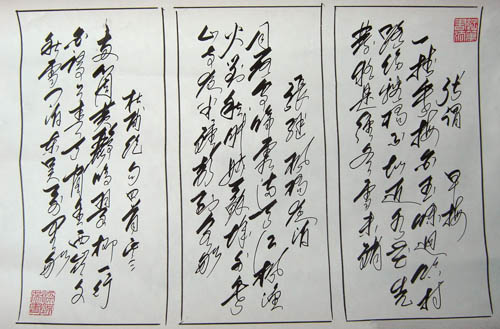 张谓 早梅
一树寒梅白玉条迥临村
路傍溪桥不知近水花先
发疑是经冬雪未销
张继 枫桥夜泊
月落乌啼霜满天江枫渔
火对愁眠姑苏城外寒
山寺夜半钟声到客船
杜甫绝句四首
两个黄鹂鸣翠柳一行
白鹭上青天窗含西岭千
秋雪门泊东吴万里船